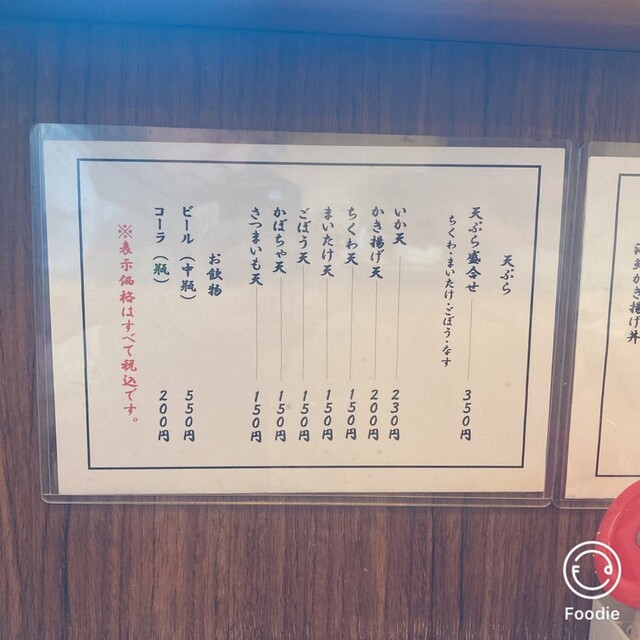 天ぷら
天ぷら盛合せ 350円
ちくわ・まいたけ・ごぼう・なす
いか天 230円
かき揚げ天 200円
ちくわ天 150円
まいたけ天 150円
ごぼう天 150円
かぼちゃ天 150円
さつまいも天 150円
お飲物
ビール（中瓶） 550円
コーラ（瓶） 200円
※表示価格はすべて税込です。
かき揚げ丼
Foodie